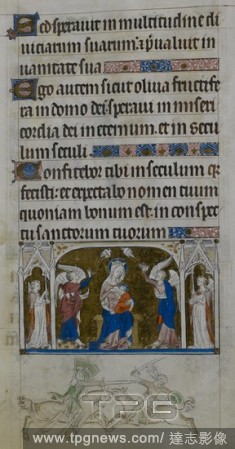 Sed speravit in multitudine di
viciarum suarum: et prevaluit in
vanitate sua
Ego autem sicut oliva fructife
ra in domo dei: speravi in miseri
cordia dei in eternum. et in secu
lum seculi.
Confitebor tibi in seculum quia
fecisti: et expectabo nomen tuum
quoniam bonum est. in conspec
tu sanctorum tuorum
TPG
www.tpgnews.com / 達志影像